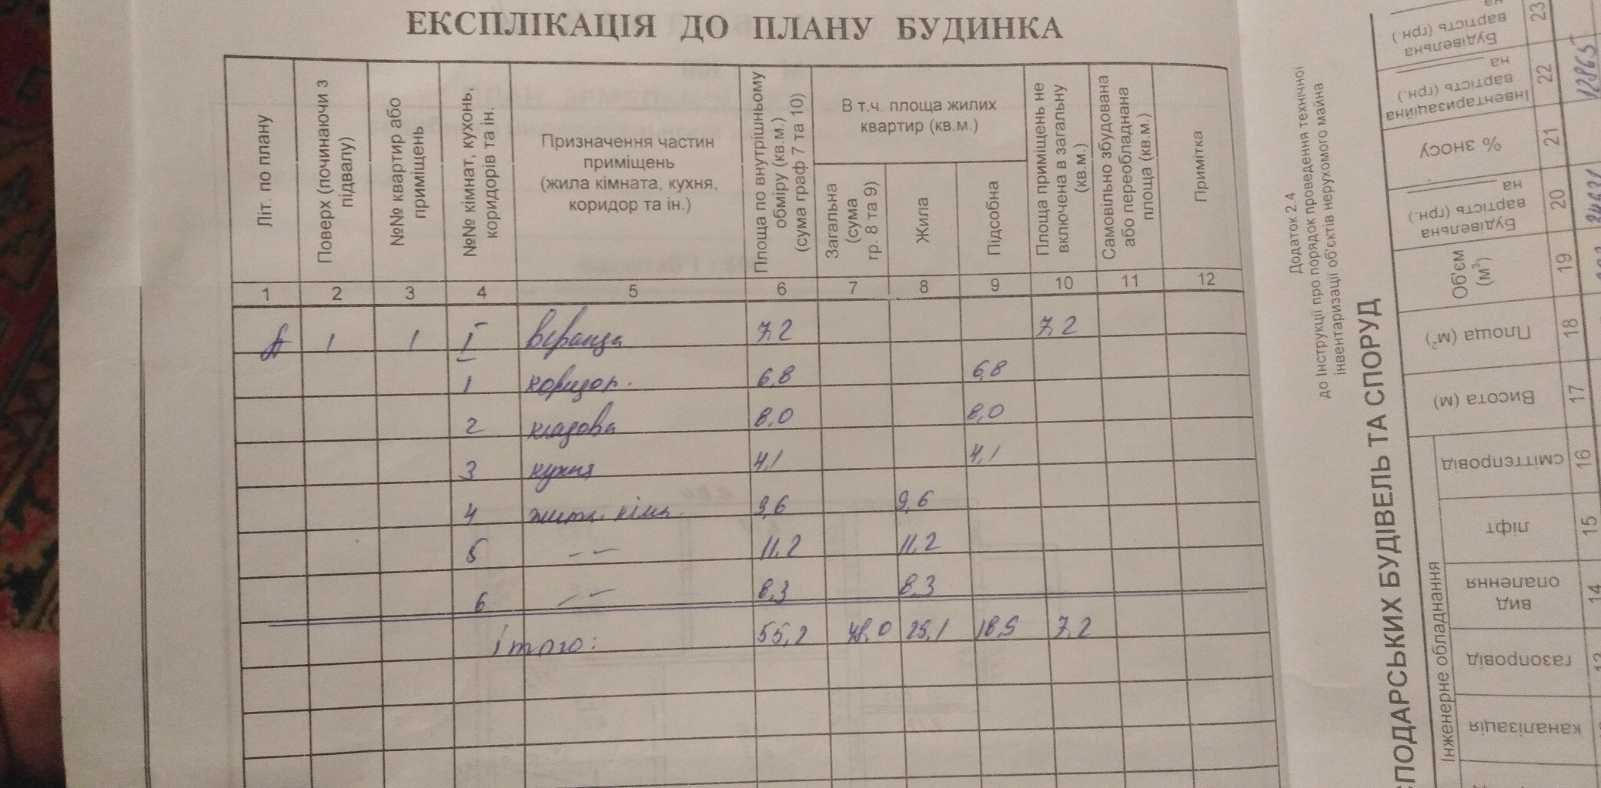 ЕКСПЛІКАЦІЯ ДО ПЛАНУ БУДИНКА
Літ. по плану
Поверх (починаючи з
підвалу)
№№ квартир або
приміщень
№№ кімнат, кухонь,
коридорів та ін.
Призначення частин
приміщень
(жила кімната, кухня,
коридор та ін.)
Площа по внутрішньому
обміру (кв.м.)
(сума граф 7 та 10)
В т.ч. площа жилих
квартир (кв.м.)
Загальна
(сума
гр. 8 та 9)
Жила
Підсобна
Площа приміщень не
включена в загальну
(кв.м.)
Самовільно збудована
або переобладнана
площа (кв.м.)
Примітка
1 2 3 4 5 6 7 8 9 10 11 12
А 1 1 I веранда 7,2 7,2
1 коридор. 6,8 6,8
2 кладова 8,0 8,0
3 кухня 4,1 4,1
4 житл. кімн. 9,6 9,6
5 –– 11,2 11,2
6 –– 8,3 8,3
Ітого: 55,2 48,0 29,1 18,9 7,2
Додаток 2.4
до Інструкції про порядок проведення технічної
інвентаризації об'єктів нерухомого майна
СПОДАРСЬКИХ БУДІВЕЛЬ ТА СПОРУД
Інженерне обладнання
каналізація
газопровід
вид
опалення
ліфт
сміттєпровід
Висота (м)
Площа (м²)
Об'єм
(м³)
Будівельна
вартість (грн.)
на
% зносу
Інвентаризаційна
вартість (грн.)
на
Будівельна
вартість (грн.)
на
13
14
15
16
17
18
19
20
21
22
23